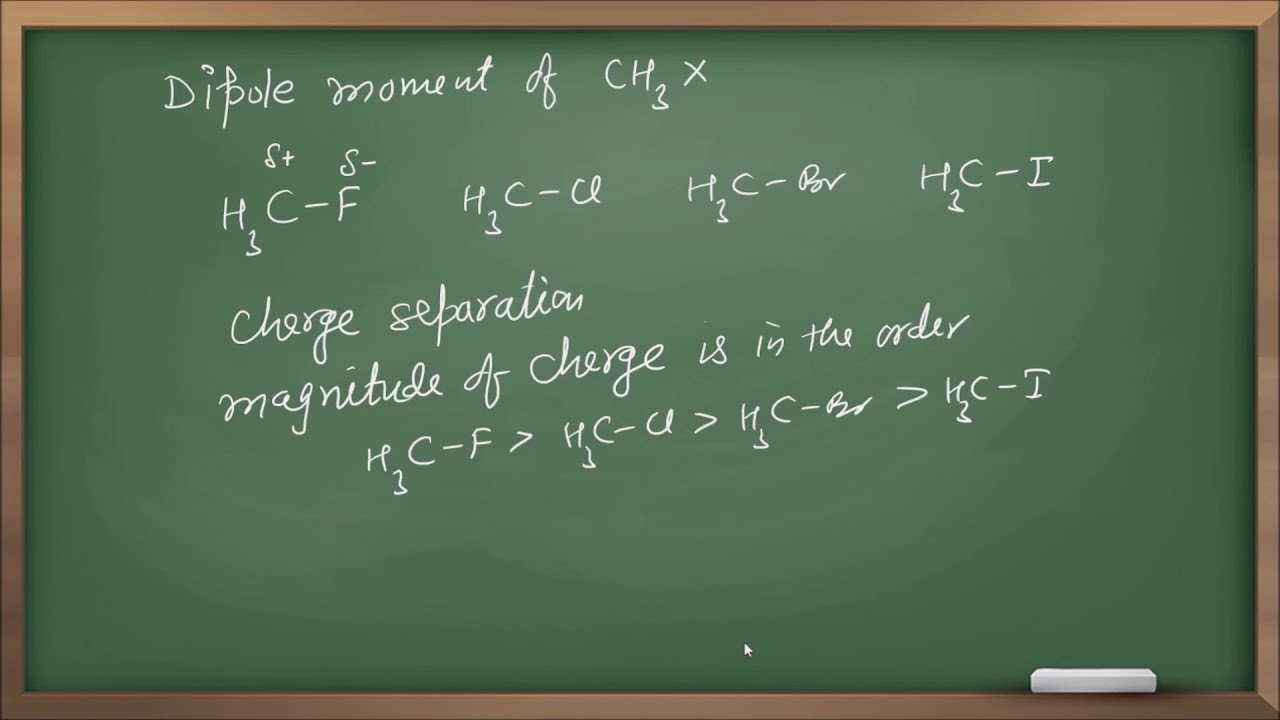 Dipole moment of CH₃X
δ+ δ-
H₃C-F H₃C-Cl H₃C-Br H₃C-I
Charge separation
magnitude of charge is in the order
H₃C-F > H₃C-Cl > H₃C-Br > H₃C-I